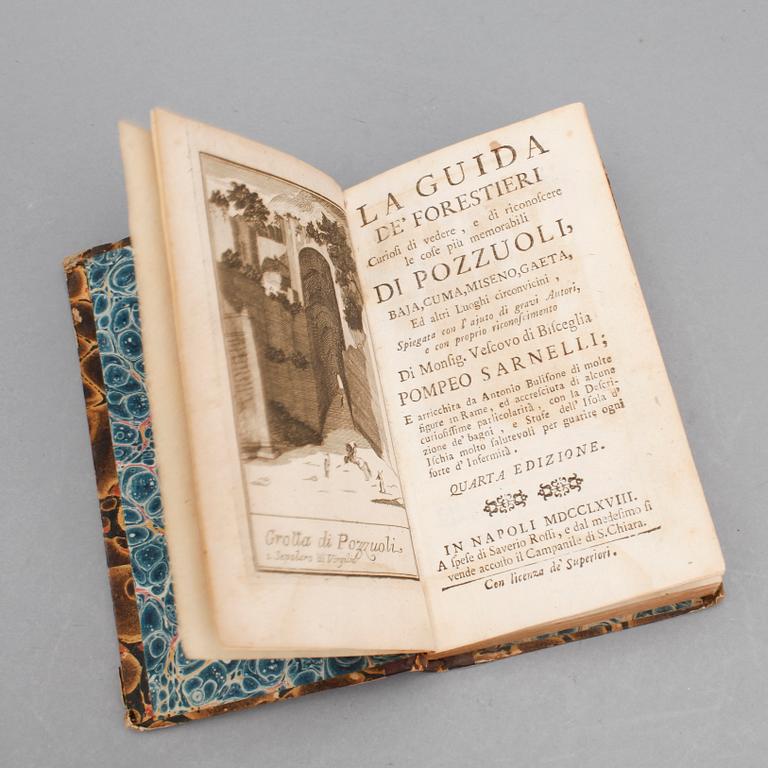 Grotta di Pozzuoli.
1. Sepolcro di Virgilio
LA GUIDA
DE' FORESTIERI
Curiosi di vedere, e di riconoscere
le cose più memorabili
DI POZZUOLI,
BAJA, CUMA, MISENO, GAETA,
Ed altri Luoghi circonvicini,
Spiegata con l'ajuto di gravi Autori,
e con proprio riconoscimento
Di Monsig. Vescovo di Bisceglia
POMPEO SARNELLI;
E arricchita da Antonio Bulifone di molte
figure in Rame, ed accresciuta di alcune
curiosissime particolarità, con la Descri-
zione de' bagni, e Stufe dell' Isola d'
Ischia molto salutevoli per guarire ogni
sorte d' Infermità.
QUARTA EDIZIONE.
IN NAPOLI MDCCLXVIII.
A spese di Saverio Rossi, e dal medesimo si
vende accosto il Campanile di S. Chiara.
Con licenza de' Superiori.